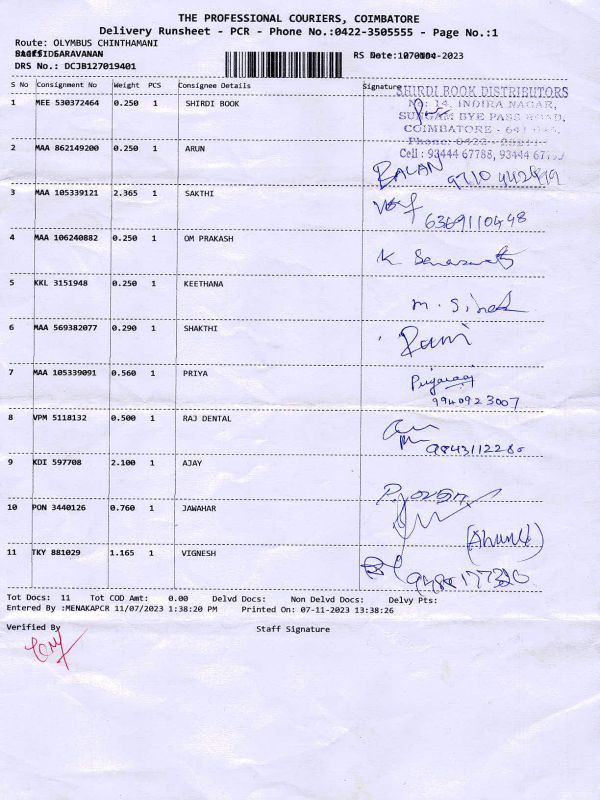 THE PROFESSIONAL COURIERS, COIMBATORE
Delivery Runsheet - PCR - Phone No.:0422-3505555 - Page No.:1
Route: OLYMBUS CHINTHAMANI
SARAVANAN
RS Date: -2023
DRS No.: DCJB127019401
S No Consignment No Weight PCS Consignee Details Signature
SHIRDI BOOK DISTRIBUTORS
1 MEE 530372464 0.250 1 SHIRDI BOOK
No: 14, INDIRA NAGAR,
SUNGAM BYE PASS ROAD,
COIMBATORE - 641 045.
Phone: 0422
2 MAA 862149200 0.250 1 ARUN
Cell : 93444 67788, 93444
BALAN
3 MAA 105339121 2.365 1 SAKTHI
6369110448
4 MAA 106240882 0.250 1 OM PRAKASH
K
5 KKL 3151948 0.250 1 KEETHANA
M.
6 MAA 569382077 0.290 1 SHAKTHI
Rami
7 MAA 105339091 0.560 1 PRIYA
9940923007
8 VPM 5118132 0.500 1 RAJ DENTAL
9 KDI 597708 2.100 1 AJAY
10 PON 3440126 0.760 1 JAWAHAR
11 TKY 881029 1.165 1 VIGNESH
Tot Docs: 11 Tot COD Amt: 0.00 Delvd Docs: Non Delvd Docs: Delvy Pts:
Entered By :MENAKAPCR 11/07/2023 1:38:20 PM Printed On: 07-11-2023 13:38:26
Verified By Staff Signature